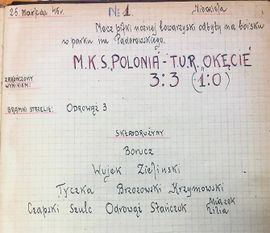 25 marzec 45r. № 1. Niedziela
Mecz piłki nożnej towarzyski odbyty na boisku
w parku im Paderewskiego.
M.K.S. POLONIA - T.U.R. OKĘCIE
ZAKOŃCZONY
WYNIKIEM:
3:3 (1:0)
BRAMKI STRZELILI: ODROWĄŻ 3
SKŁAD DRUŻYNY
Borucz
Wujek Zieliński
Tyczka Brzozowski Krzymowski
Czapski Szulc Odrowąż Stańczuk Miązek
Zilia